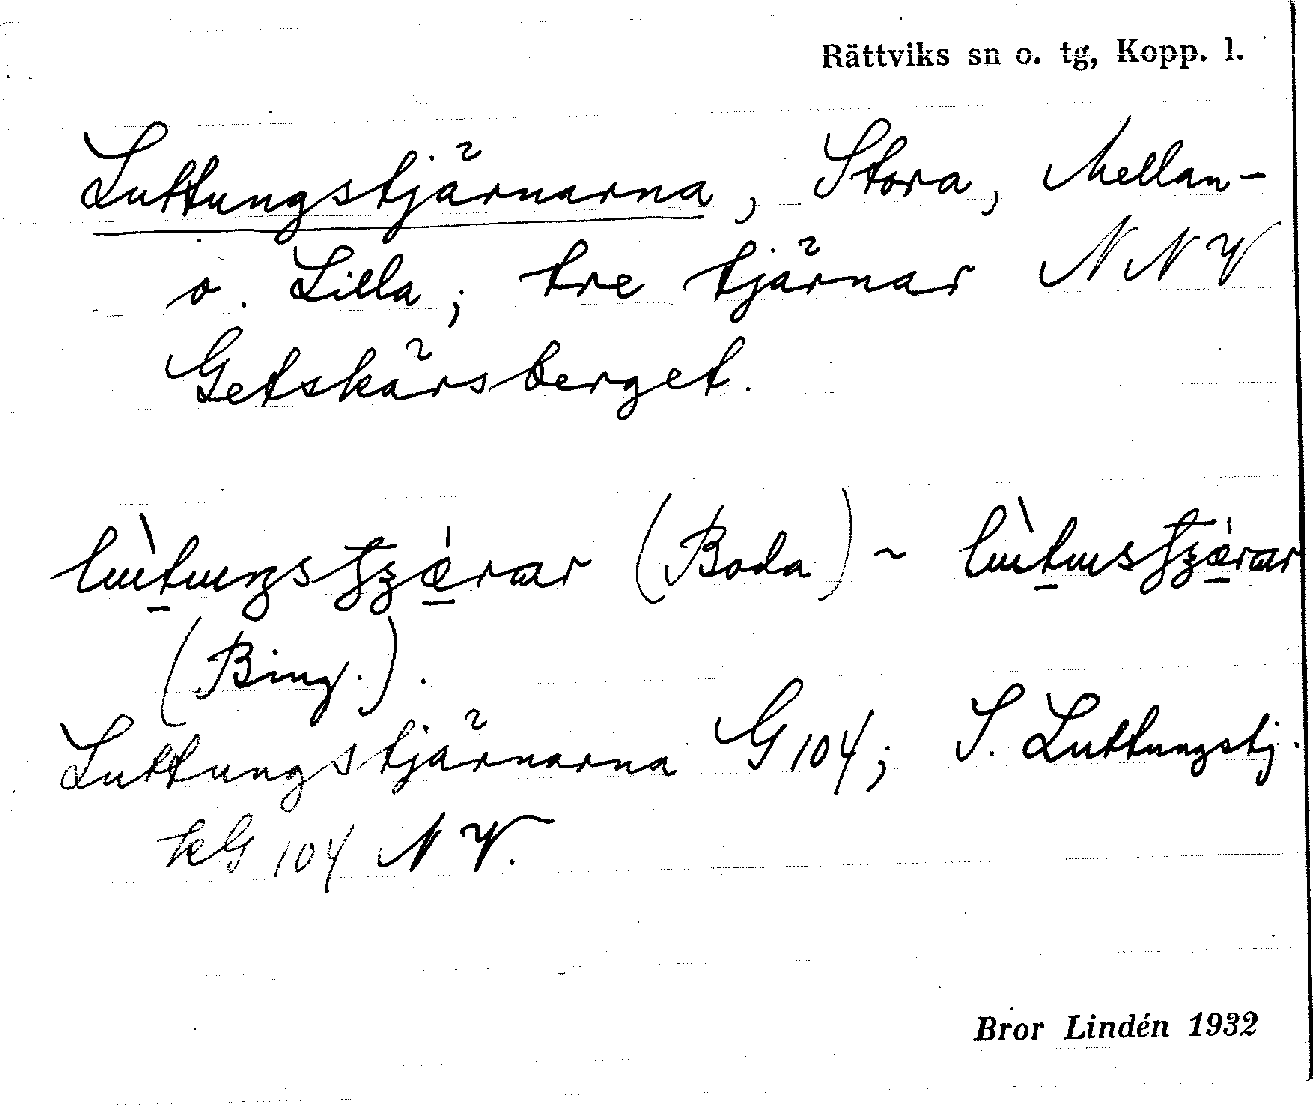 Rättviks sn o. tg, Kopp. l.
Luttungstjärnarna, Stora, Mellan-
o. Lilla; tre tjärnar NNV
Getskärsberget.
(Boda) ~
(Bing.).
Luttungstjärnarna G 104; S. Luttungstj.
kG 104 NV.
Bror Lindén 1932